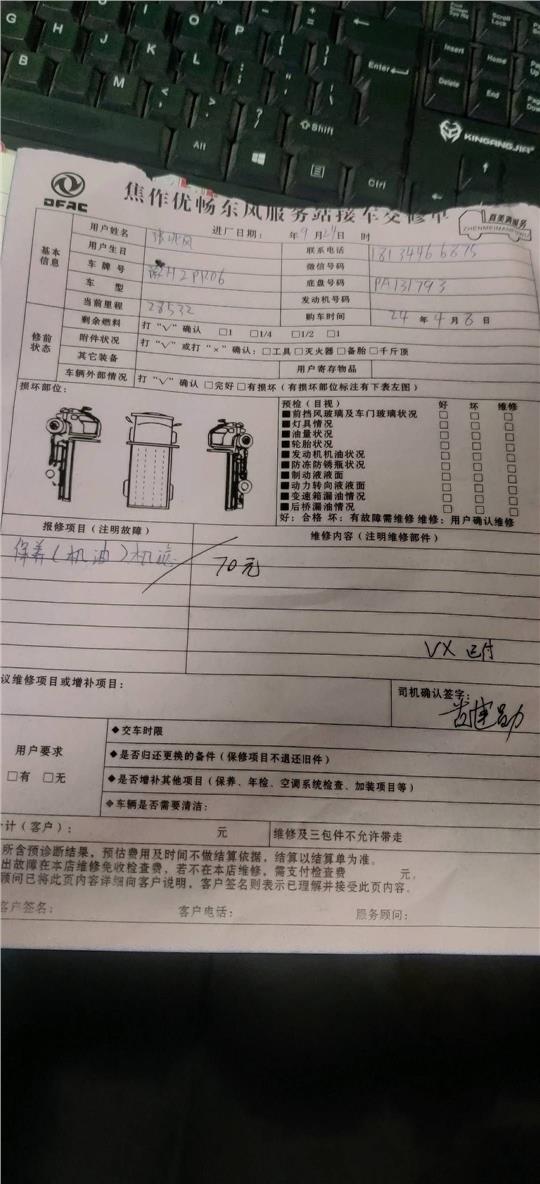 G H J K L
B N M
I O P
Enter
Shift
Alt
Ctrl
Scroll Lock
Insert Home
Delete End
KINGANGJIA
DFAC
焦作优畅东风服务站接车交修单
真美满服务
ZHENMEIMANFUWU
进厂日期： 年9月24日 时
基本信息
用户姓名
联系电话 18134466875
用户生日
微信号码
车牌号 H2PR06
底盘号码 PA131793
车型
发动机号码
当前里程 28532
购车时间 24年4月8日
修前状态
剩余燃料 打“√”确认 □1 □1/4 □1/2 □1
附件状况 打“√”或打“×”确认：□工具□灭火器□备胎□千斤顶
其它装备 用户寄存物品
车辆外部情况 打“√”确认 □完好□有损坏（有损坏部位标注有下表左图）
损坏部位：
预检（目视） 好 坏 维修
■前挡风玻璃及车门玻璃状况 □ □ □
■灯具情况 □ □ □
■油量状况 □ □ □
■轮胎状况 □ □ □
■发动机机油状况 □ □ □
■防冻防锈瓶状况 □ □ □
■制动液液面 □ □ □
■动力转向液液面 □ □ □
■变速箱漏油情况 □ □ □
■后桥漏油情况 □ □ □
好：合格 坏：有故障需维修 维修：用户确认维修
报修项目（注明故障） 维修内容（注明维修部件）
保养（机油）机滤 70元
VX 已付
议维修项目或增补项目：
司机确认签字：
用户要求
□有 □无
◆交车时限
◆是否归还更换的备件（保修项目不退还旧件）
◆是否增补其他项目（保养、年检、空调系统检查、加装项目等）
◆车辆是否需要清洁：
计（客户）： 元 维修及三包件不允许带走
所含预诊断结果，预估费用及时间不做结算依据，结算以结算单为准。
出故障在本店维修免收检查费，若不在本店维修，需支付检查费 元。
顾问已将此页内容详细向客户说明，客户签名则表示已理解并接受此页内容。
客户签名： 客户电话： 服务顾问：